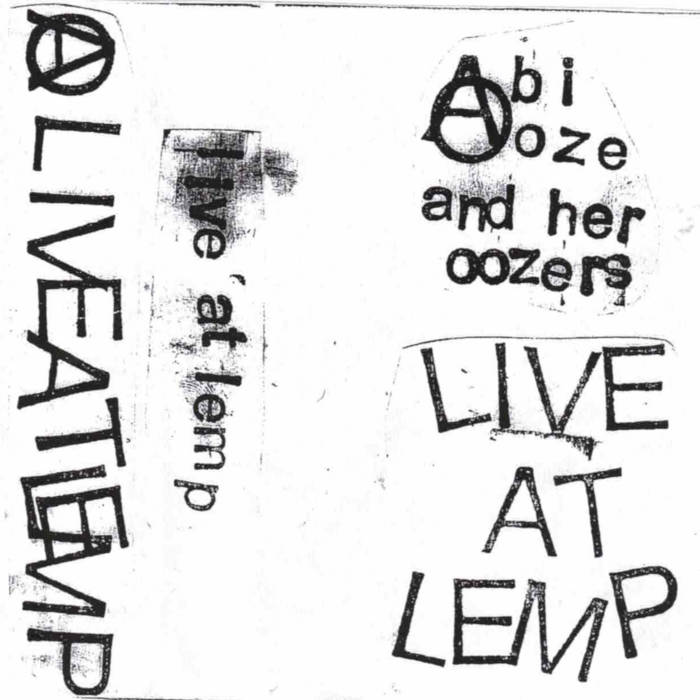 Ⓐ LIVE AT LEMP
live at lemp
Abi
Ooze
and her
oozers
LIVE
AT
LEMP